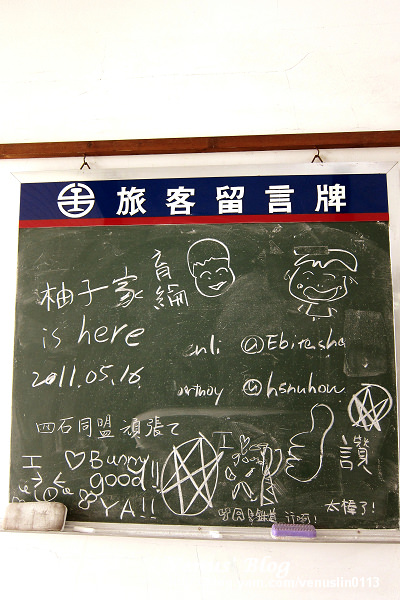 旅客留言牌
育綸
柚子家
is here
2011.05.16
@Ebitensha
@hsnuhou
四石同盟 頑張て
I ♡ Bunny
good!!
YA!!
I
讚
太棒了!
Blog
venuslin0113